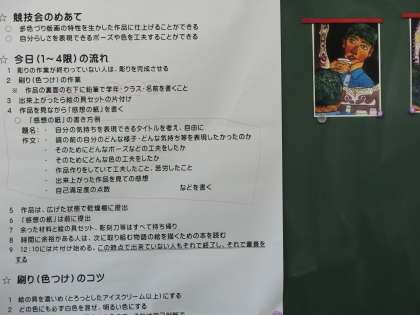 ☆ 競技会のめあて
○ 多色づり版画の特性を生かした作品に仕上げることができる
○ 自分らしさを表現できるポーズや色を工夫することができる
☆ 今日（1〜4限）の流れ
1 彫りの作業が終わっていない人は、彫りを完成させる
2 刷り（色づけ）の作業
※ 作品の裏面の右下に鉛筆で学年・クラス・名前を書くこと
3 出来上がったら絵の具セットの片付け
4 作品を見ながら「感想の紙」を書く
○ 「感想の紙」の書き方例
題名： ・ 自分の気持ちを表現できるタイトルを考え、自由に
作文： ・ 鏡の前の自分のどんな様子・どんな気持ち等を表現したかったのか
・ そのためにどんなポーズなどの工夫をしたか
・ そのためにどんな色の工夫をしたか
・ 作品作りをしていて工夫したこと、苦労したこと
・ 出来上がった作品を見ての感想
・ 自己満足度の点数 などを書く
5 作品は、広げた状態で乾燥棚に提出
6 「感想の紙」は前に提出
7 余った材料と絵の具セット、彫刻刀等はすべて持ち帰り
8 時間に余裕がある人は、次に取り組む物語の絵を描くための本を読む
9 12:10には片付け始める。この時点で出来ていない人もそれで終了し、それで審査を
する
☆ 刷り（色つけ）のコツ
1 絵の具を濃いめ（とろっとしたアイスクリーム以上）にする
2 どの色にも必ず白色を混ぜ、明るい色にする